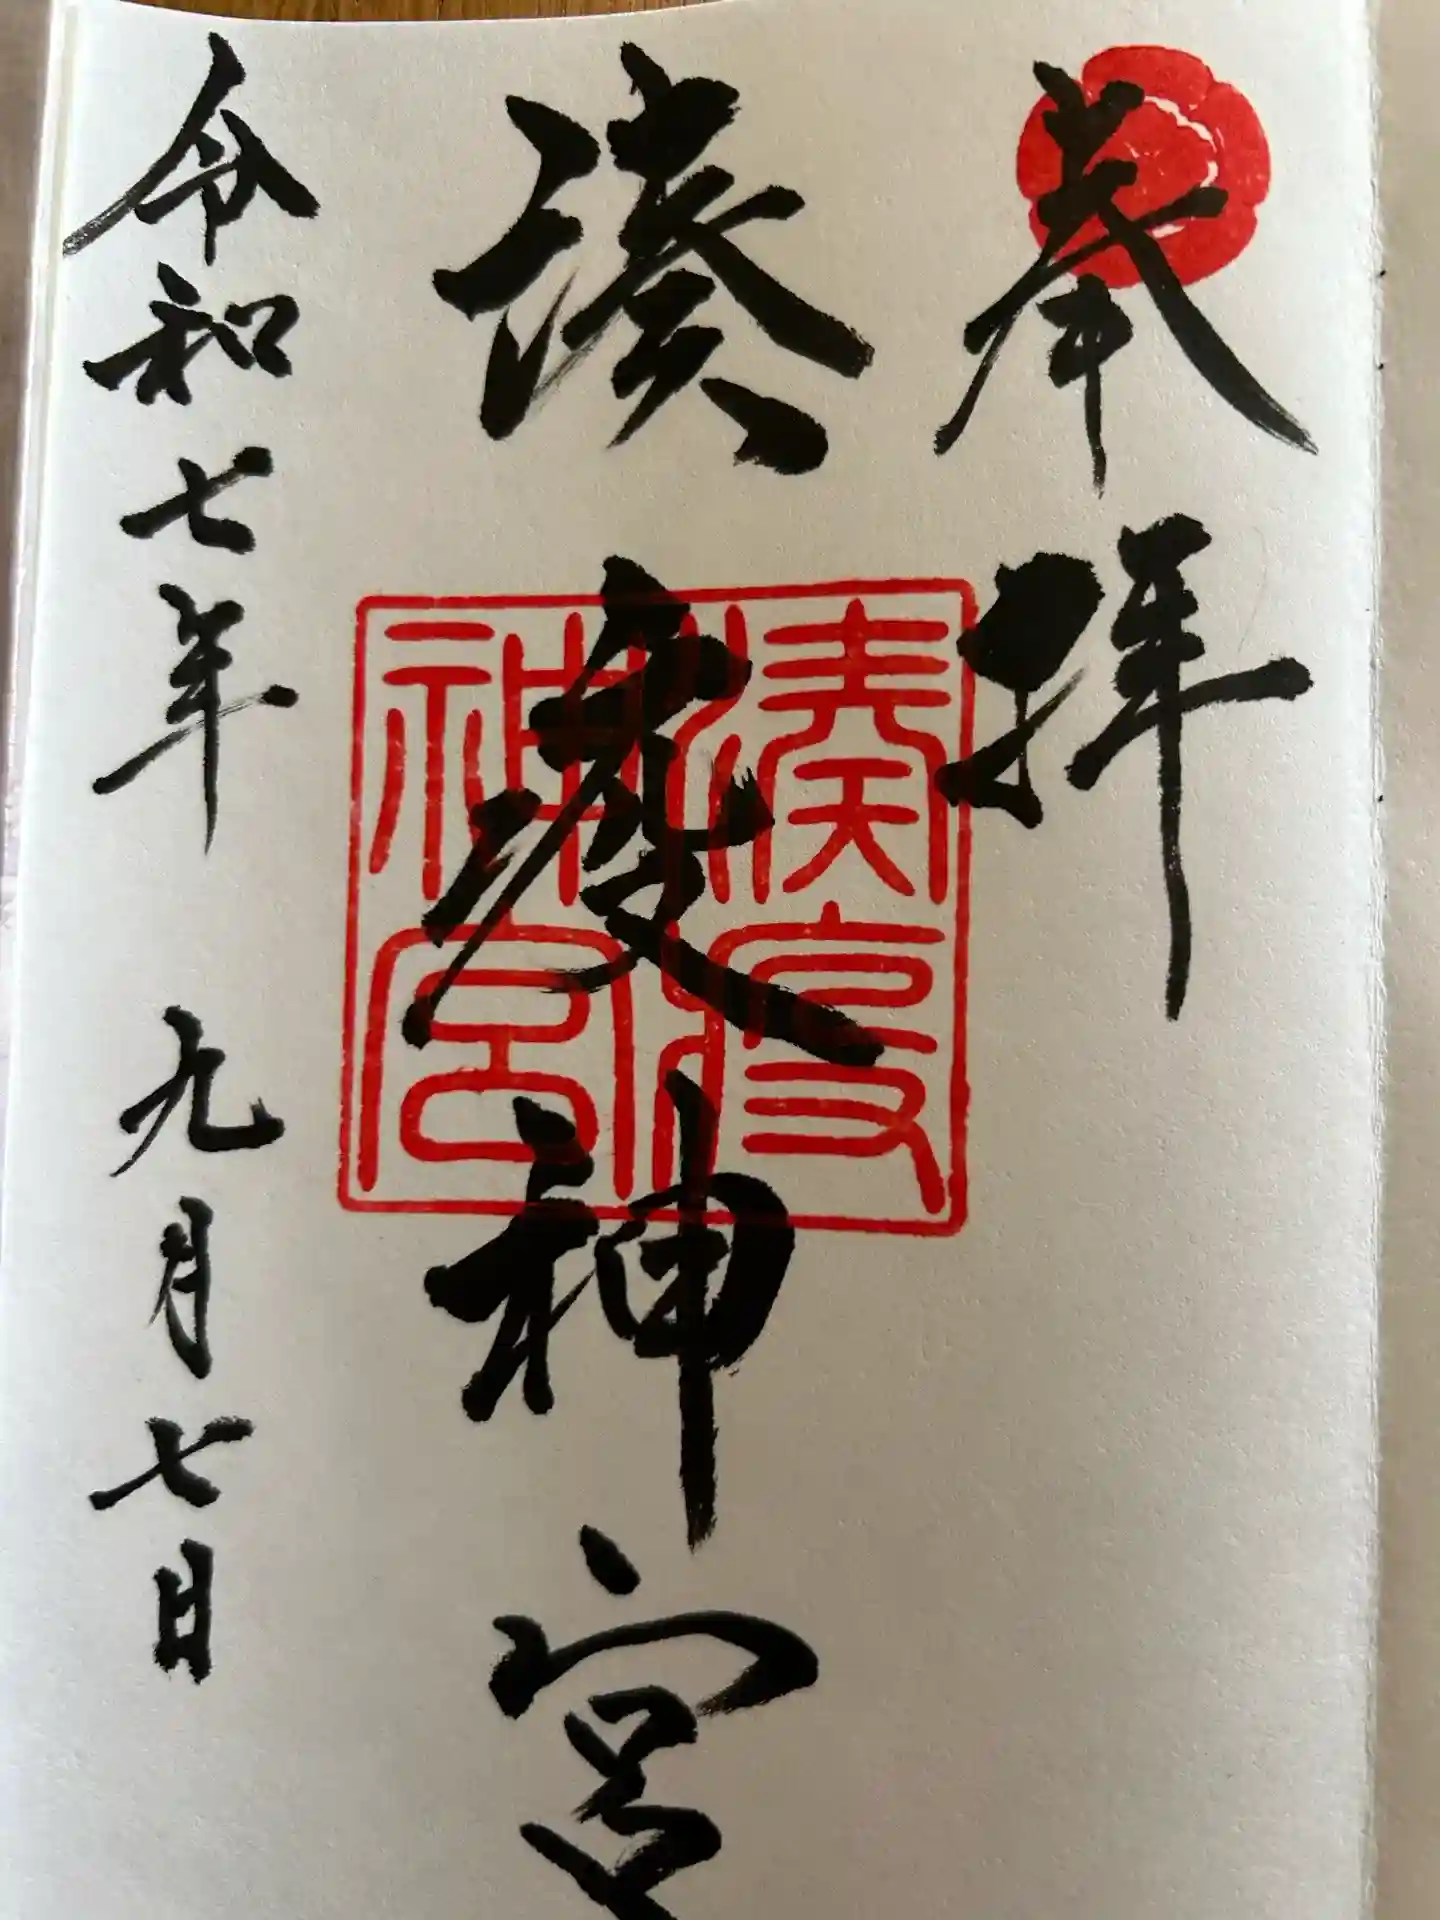 奉拝
湊疫神宮
令和七年 九月七日
湊疫
神宮